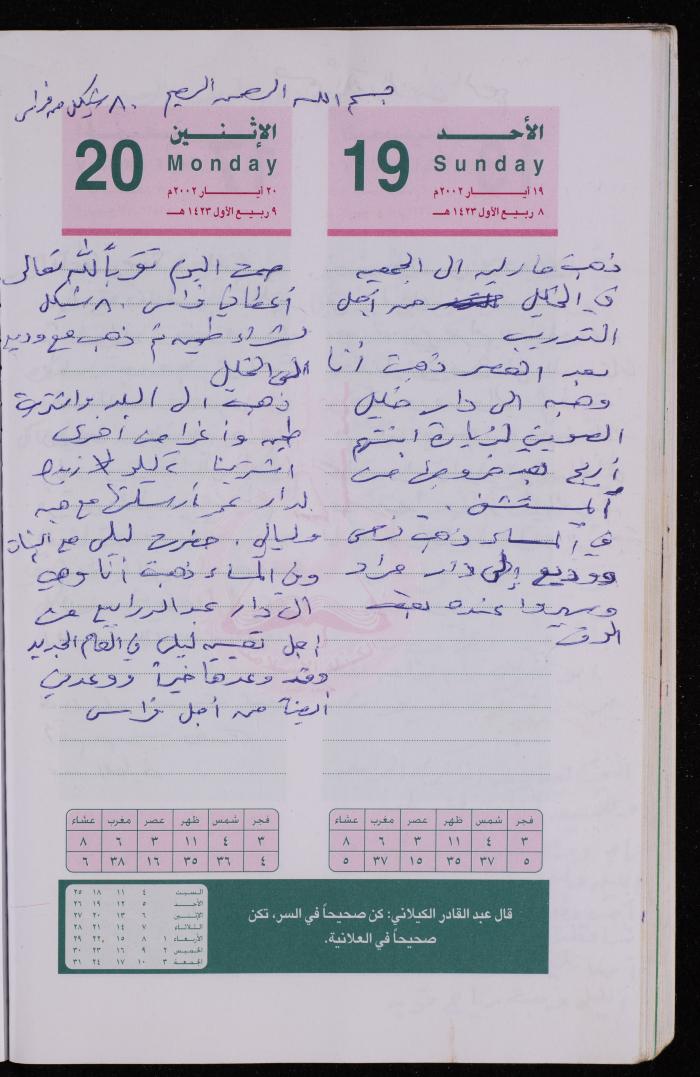 بسم الله الرحمن الرحيم
٨٠ شيكل من فراس
الأحد
19 Sunday
١٩ أيار ٢٠٠٢م
٨ ربيع الأول ١٤٢٣ هـ
ذهبت مارليه الى الجمعيه
في الخليل من أجل
التدريب
بعد العصر ذهبت أنا
وهبه الى دار خليل
لزيارة ابنتهم
أريج بعد خروجها من
المستشفى .
في المساء ذهب
ووديع إلى دار مراد
وسهروا عنده بعض
الوقت
الإثنين
20 Monday
٢٠ أيار ٢٠٠٢م
٩ ربيع الأول ١٤٢٣ هـ
صمت اليوم تقرباً لله تعالى
أعطاني فراس ٨٠ شيكل
لشراء طحينه ثم ذهب مع وديع
الى الخليل
ذهبت الى البلد واشتريت
طحينه وأغراض أخرى
اشترينا
لدار عمر أرسلتها مع هبه
وليالي . حضرت ليلى مع البنات
وفي المساء ذهبت أنا وهي
الى دار عبد الرابيع من
اجل تعيين ليلى في العام الجديد
وقد وعدها خيراً ووعدني
أيضاً من أجل فراس
فجر شمس ظهر عصر مغرب عشاء
٣ ٤ ١١ ٣ ٦ ٨
٥ ٣٧ ٣٥ ١٥ ٣٧ ٥
فجر شمس ظهر عصر مغرب عشاء
٣ ٤ ١١ ٣ ٦ ٨
٤ ٣٦ ٣٥ ١٦ ٣٨ ٦
قال عبد القادر الكيلاني: كن صحيحاً في السر، تكن
صحيحاً في العلانية.
السبت ٤ ١١ ١٨ ٢٥
الأحد ٥ ١٢ ١٩ ٢٦
الإثنين ٦ ١٣ ٢٠ ٢٧
الثلاثاء ٧ ١٤ ٢١ ٢٨
الأربعاء ١ ٨ ١٥ ٢٢ ٢٩
الخميس ٢ ٩ ١٦ ٢٣ ٣٠
الجمعة ٣ ١٠ ١٧ ٢٤ ٣١